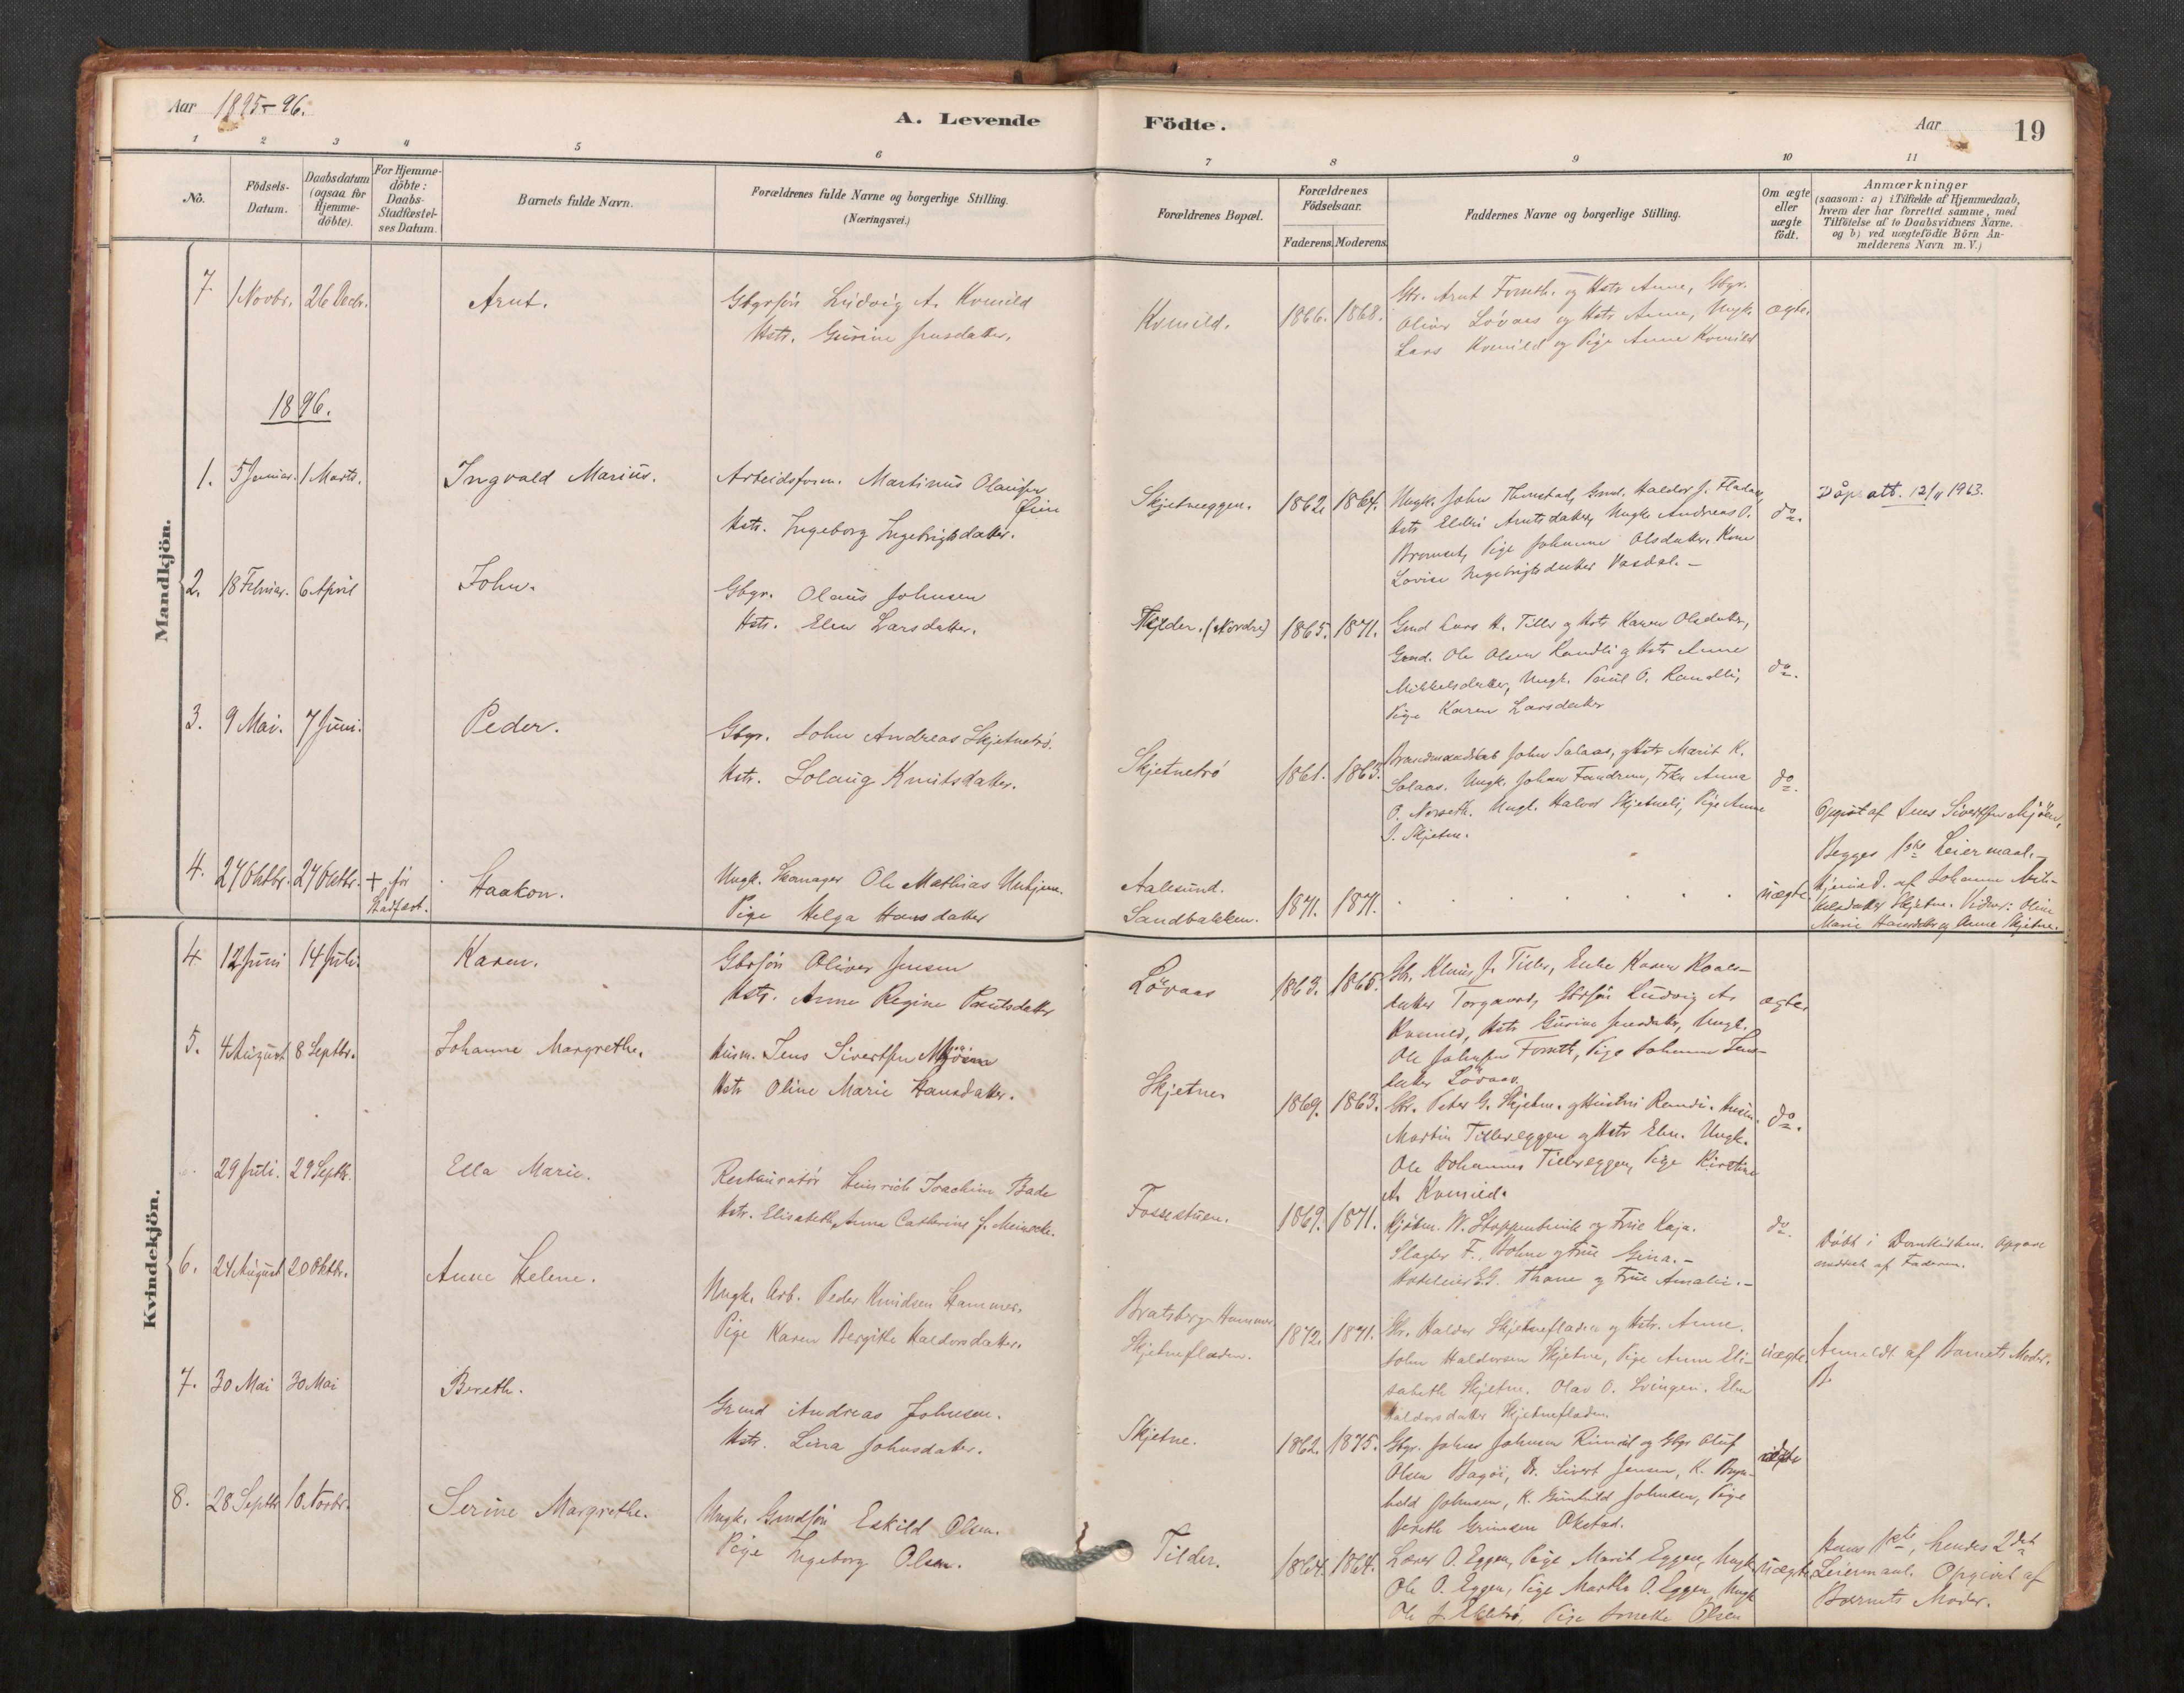 Aar 1895-96.
A. Levende
Födte.
Aar
19
1 2 3 4 5 6 7 8 9 10 11
No.
Födsels-
Datum.
Daabsdatum
(ogsaa for
Hjemme-
döbte).
For Hjemme-
döbte:
Daabs-
Stadfæstel-
ses Datum.
Barnets fulde Navn.
Forældrenes fulde Navne og borgerlige Stilling.
(Næringsvei.)
Forældrenes Bopæl.
Forældrenes
Födselsaar.
Faderens. Moderens.
Faddernes Navne og borgerlige Stilling.
Om ægte
eller
uægte
födt.
Anmærkninger
(saasom: a) i Tilfælde af Hjemmedaab,
hvem der har forrettet samme, med
Tilföielse af to Daabsvidners Navne.
og b) ved uægtefödte Börn An-
melderens Navn m. V.)
Mandkjön.
7 1 Novbr. 26 Decb. Arnt.
Gbgrsøn Ludvig A. Kvenild
Hstr. Gurine Jensdatter.
Kvenild. 1866. 1868.
Gbr. Arnt Forseth. og Hstr Anne, Gbgr.
Oliver Løvaas og Hstr Anne, Ungk.
Lars Kvenild og Pige Anne Kvenild
ægte.
1896.
1. 5 Januar. 1 Marts. Ingvald Marius.
Arbeidsform. Martinus Olausen
Øien
Hstr. Ingeborg Ingebrigtsdatter.
Skjetneeggen. 1862. 1864.
Ungk. John Thonstad, Gmd. Haldor J. Fladan,
Hstr Eldri Arntsdatter, Ungk. Andreas O.
Bromset, Pige Johanne Olsdatter. Kone
Lovise Ingebrigtsdatter Vasdal. -
do.
Dåpsatt. 12/11 1963.
2. 18 Februar. 6 April John.
Gbgr. Olaus Johnsen
Hstr. Elen Larsdatter.
Tilder. (Nordre) 1865. 1871.
Gmd Lars H. Tiller og Hstr Karen Olsdatter,
Gmd. Ole Olsen Randli og Hstr Anne
Mikkelsdatter, Ungk. Paul O. Randli,
Pige Karen Larsdatter
do.
3. 9 Mai. 7 Juni. Peder.
Gbgr. John Andreas Skjetnetrø.
Hstr. Solaug Knutsdatter.
Skjetnetrø 1861. 1863.
John Salaas, og Hstr Marit K.
Salaas. Ungk. Johan Fandrem, Frkn Anna
O. Norseth. Ungk. Halvor Skjetneli, Pige Anne
J. Skjetne.
do.
4. 27 Oktbr. 27 Oktbr. + før
Stadfæst.
Haakon.
Ungk. Ole Mathias
Pige Helga Hansdatter
Aalesund.
Sandbakken. 1871. 1871.
uægte.
Opgivet af Jens Sivertsen Mjøen,
Begges 1ste Leiermaal. -
Hjemmed. af Johanne Mik-
kelsdatter Skjetne. Vidner: Oline
Marie Hansdatter og Anne Skjetne.
Kvindekjön.
4 12 Juni 14 Juli. Karen.
Gbrsøn Oliver Jensen
Hstr. Anne Regine Pauls datter
Løvaas 1863. 1865.
Gbr. Klaus J. Tiller, Enke Karen Roals-
datter Torgaard, Gbrsøn Ludvig A.
Kvenild, Hstr Gurine Jensdatter, Ungk.
Ole Johnsen Forseth, Pige Johanne Jens-
datter Løvaas.
ægte.
5. 4 August 8 Septbr. Johanne Margrethe.
Husm. Jens Sivertsen Mjøen
Hstr Oline Marie Hansdatter.
Skjetne. 1869. 1863.
Gbr. Peter G. Skjetne. og Hustru Randi. Husm.
Martin Tillereggen og Hstr Elen. Ungk.
Ole Johannes Tillereggen, Pige Kirstine
A. Kvenild.
do.
29 Juli. 29 Septb. Ella Marie.
Restauratør Heinrich Joachim Bade
Hstr. Elisabeth Anna Catherine f. Meinecke.
Fossestuen. 1869. 1871.
Kjøbm. W. Stoppenbrink og Frue Kaja.
Slagter F. Bohne og Frue Gina. -
Hotelleier E.G. Thane og Frue Amalie. -
do.
Døbt i Domkirken. Opgave
meddelt af Faderen.
6. 24 August 20 Oktbr. Anne Helene.
Ungk. Arb. Peder Knudsen Hammer.
Pige Karen Bergitte Haldorsdatter.
Bratsberg-Hammer
Skjetnefladen. 1872. 1871.
Gbr. Haldor Skjetnefladen og Hstr. Anne.
John Haldorsen Skjetne, Pige Anne Eli-
sabeth Skjetne. Olav O. Svingen. Elen
Haldorsdatter Skjetnefladen.
uægte.
Anmeldt af Barnets Moder.
7. 30 Mai 30 Mai Bereth.
Grmd Andreas Johnsen.
Hstr. Lina Johnsdatter.
Skjetne. 1862. 1875.
Gbgr. Johan Johnsen Rimol og Gbgr Oluf
Olsen Bagøi, Dr. Sivert Jensen, K. Bryn-
hild Johnsen, K. Gunhild Johnsen, Pige
Bereth Grimsen Okstad.
8. 28 Septbr 1 Novbr. Serine Margrethe.
Ungk. Grmdsøn Eskild Olsen.
Pige Ingeborg Olsen.
Tilder. 1864. 1864.
Lærer O. Eggen, Pige Marit Eggen, Ungk.
Ole O. Eggen, Pige Martha O. Eggen, Ungk
Ole J. Pige Olsen
uægte.
Hans 1ste, hendes 2det
Leiermaal. Opgivet af
Barnets Moder.